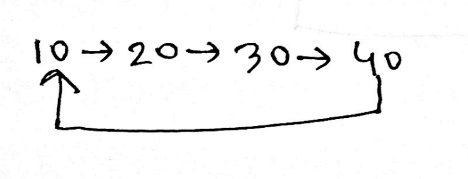 10 → 20 → 30 → 40